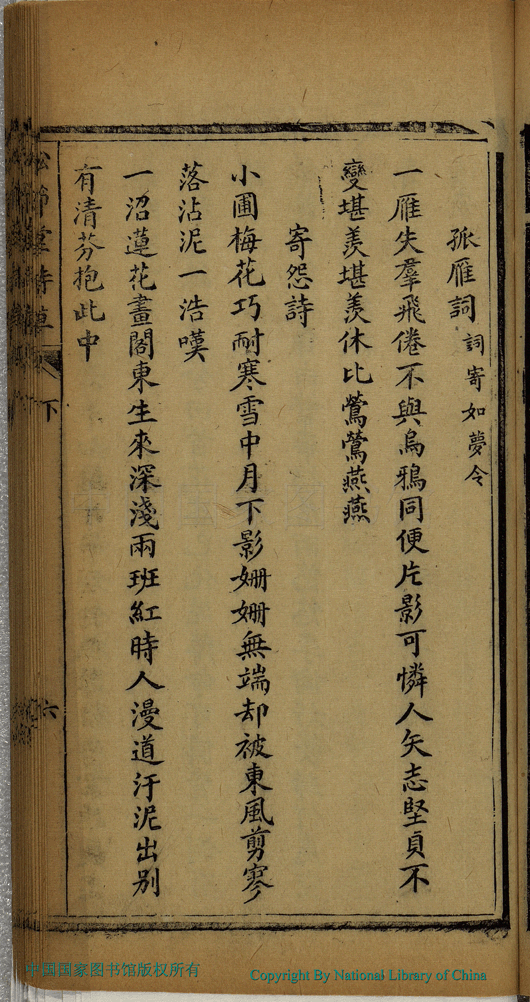 孤雁詞 詞寄如夢令
一雁失羣飛倦不與烏鴉同便片影可憐人矢志堅貞不
變堪羨堪羨休比鶯鶯燕燕
寄怨詩
小圃梅花巧耐寒雪中月下影姍姍無端却被東風剪零
落沾泥一浩嘆
一沼蓮花畫閣東生來深淺兩班紅時人漫道汙泥出别
有清芬抱此中
松節堂詩草
下
六
中国国家图书馆版权所有
Copyright By National Library of China